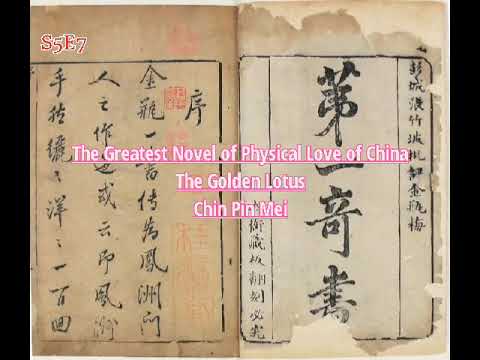 S5E7
The Greatest Novel of Physical Love of China
The Golden Lotus
Chin Pin Mei
彭城張竹坡批評金瓶梅
第一奇書
衙藏板翻刻必究
序
金瓶一書傳為鳳洲門
人之作也或云即鳳洲
手然纚〻洋〻一百回